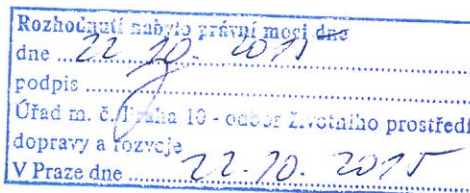 Rozhodnutí nabylo právní moci dne
dne 22. 10. 2015
podpis
Úřad m. č. Praha 10 - odbor životního prostředí
dopravy a rozvoje
V Praze dne 22. 10. 2015